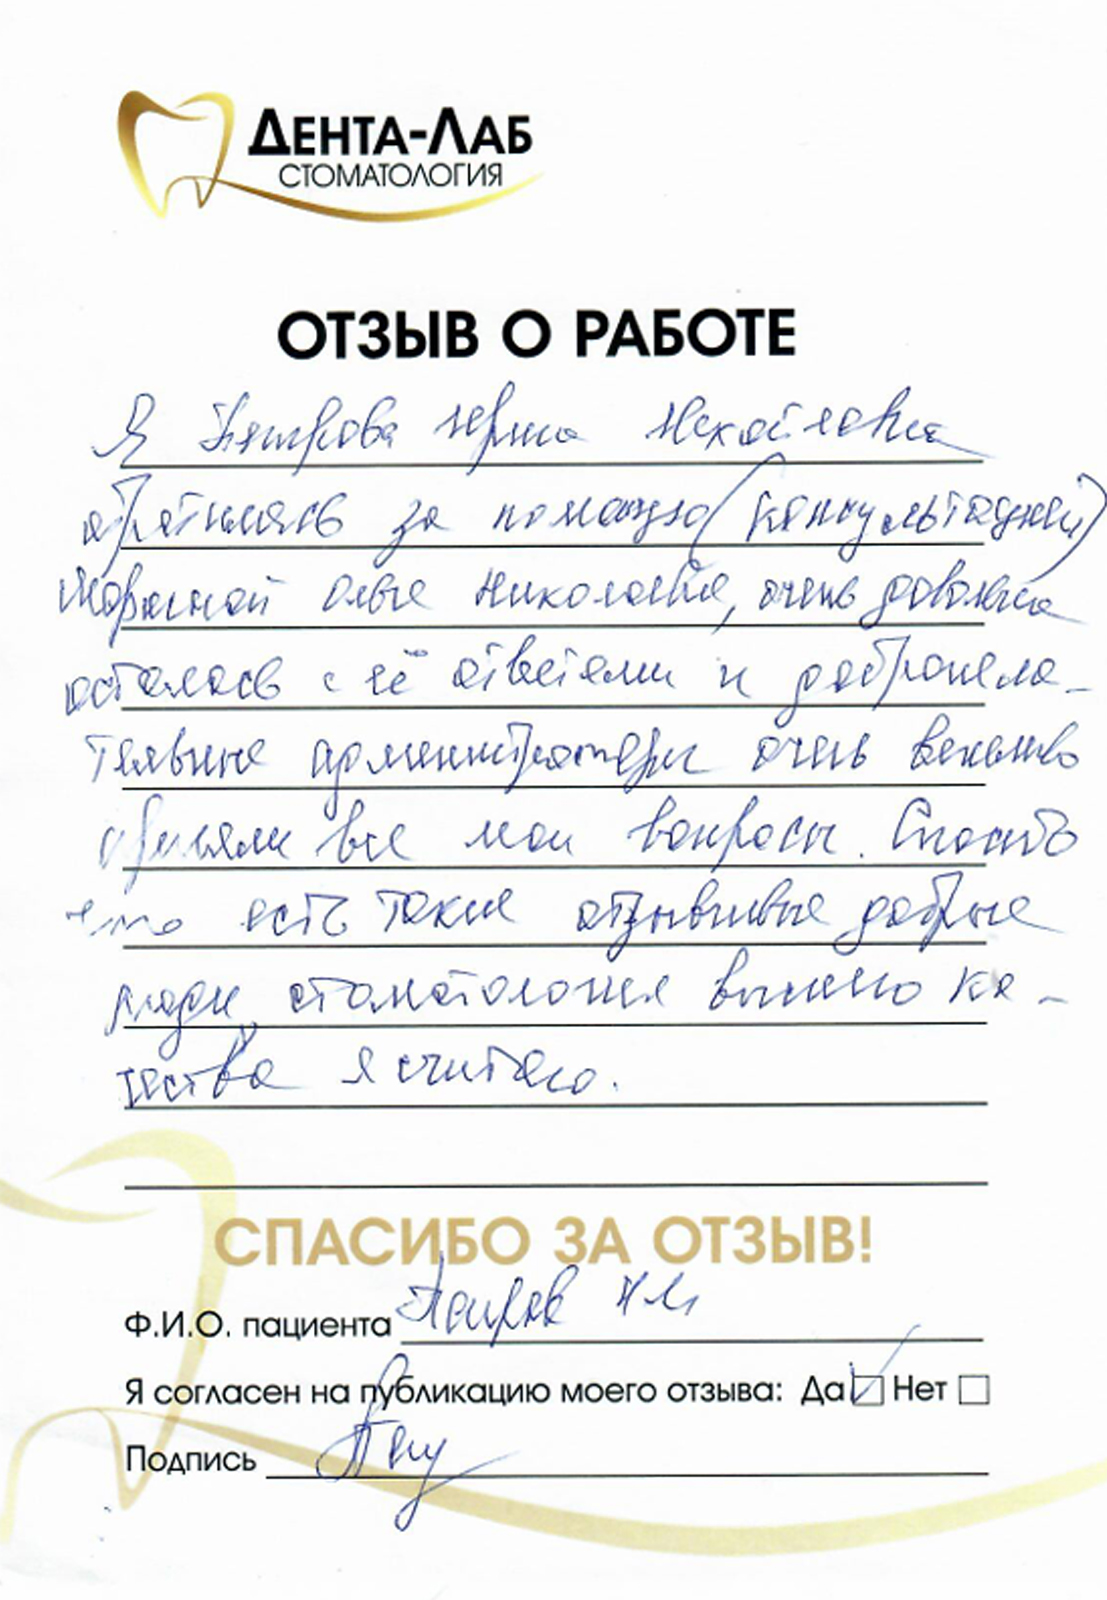 ДЕНТА-ЛАБ
СТОМАТОЛОГИЯ
ОТЗЫВ О РАБОТЕ
Я Петрова
обратилась за помощью (консультацией)
Ольге Николаевне, очень довольна
осталась с её ответами и доброжела-
тельные администраторы очень вежливо
все мои вопросы. Спасибо
что есть такие отзывчивые добрые
люди, стоматология высшего ка-
чества я считаю.
СПАСИБО ЗА ОТЗЫВ!
Ф.И.О. пациента
Я согласен на публикацию моего отзыва: Да Нет
Подпись